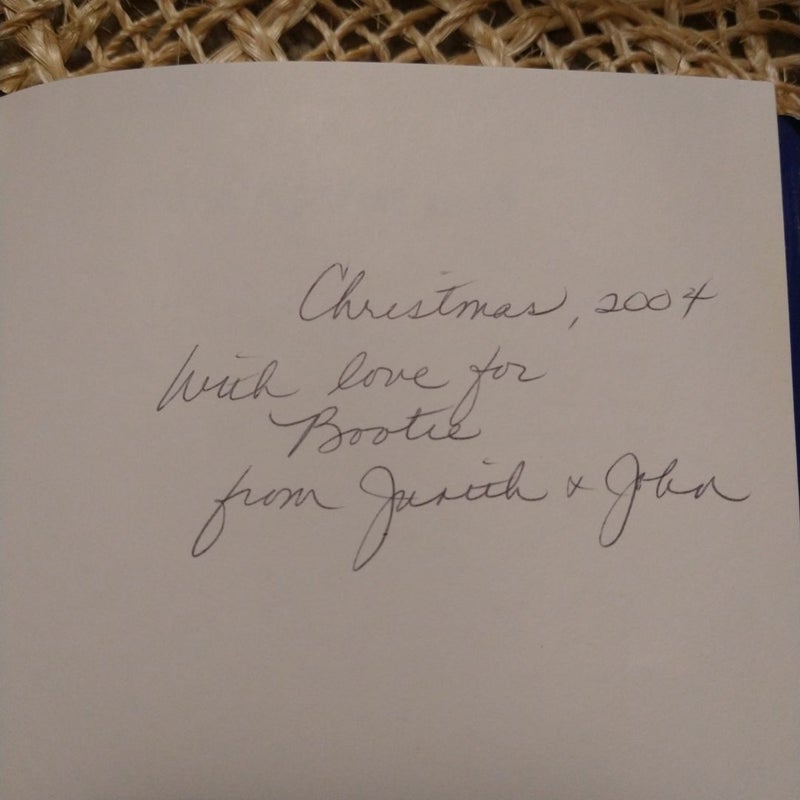 Christmas, 2004
With love for
Bootie
from Judith & John